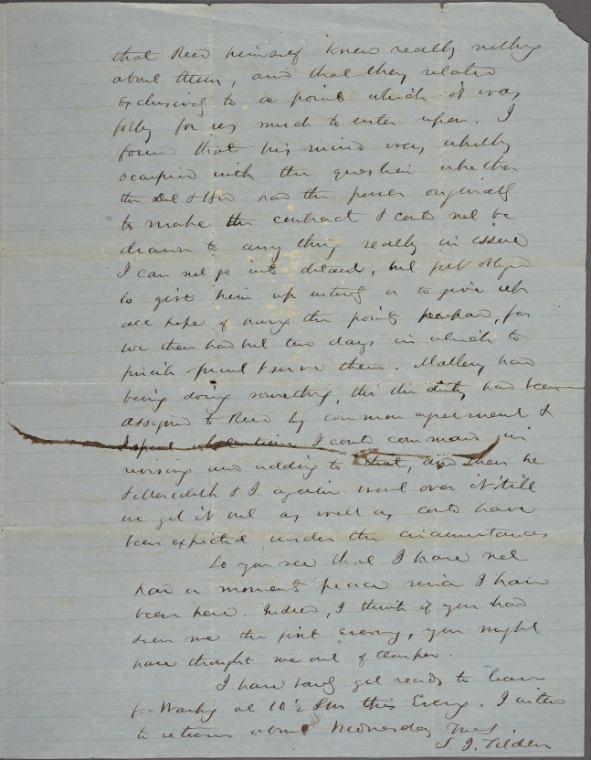 that Reed himself knew really nothing
about them, and that they related
exclusively to a point which it was
folly for us much to enter upon. I
found that his mind was wholly
occupied with the question whether
the Del & Hud had the power originally
to make the contract & could not be
drawn to any thing really in issue
I can not go into details, but felt obliged
to give him up entirely or to give up
all hope of having the points prepared, for
we then had but two days in which to
finish print & serve them. Mallery had
being doing something, tho the duty had been
assigned to Reed by common agreement &
I spent what time I could command in
revising and adding to that, and then he
& Meredith & I again went over it till
we got it out as well as could have
been expected under the circumstances
So you see that I have not
had a moments peace since I have
been here. Indeed, I think if you had
seen me the first evening, you might
have thought me out of temper.
I have barely got ready to leave
for Washg at 10½ P.M. this Eveng. I intend
to return about Wednesday next
S. J. Tilden